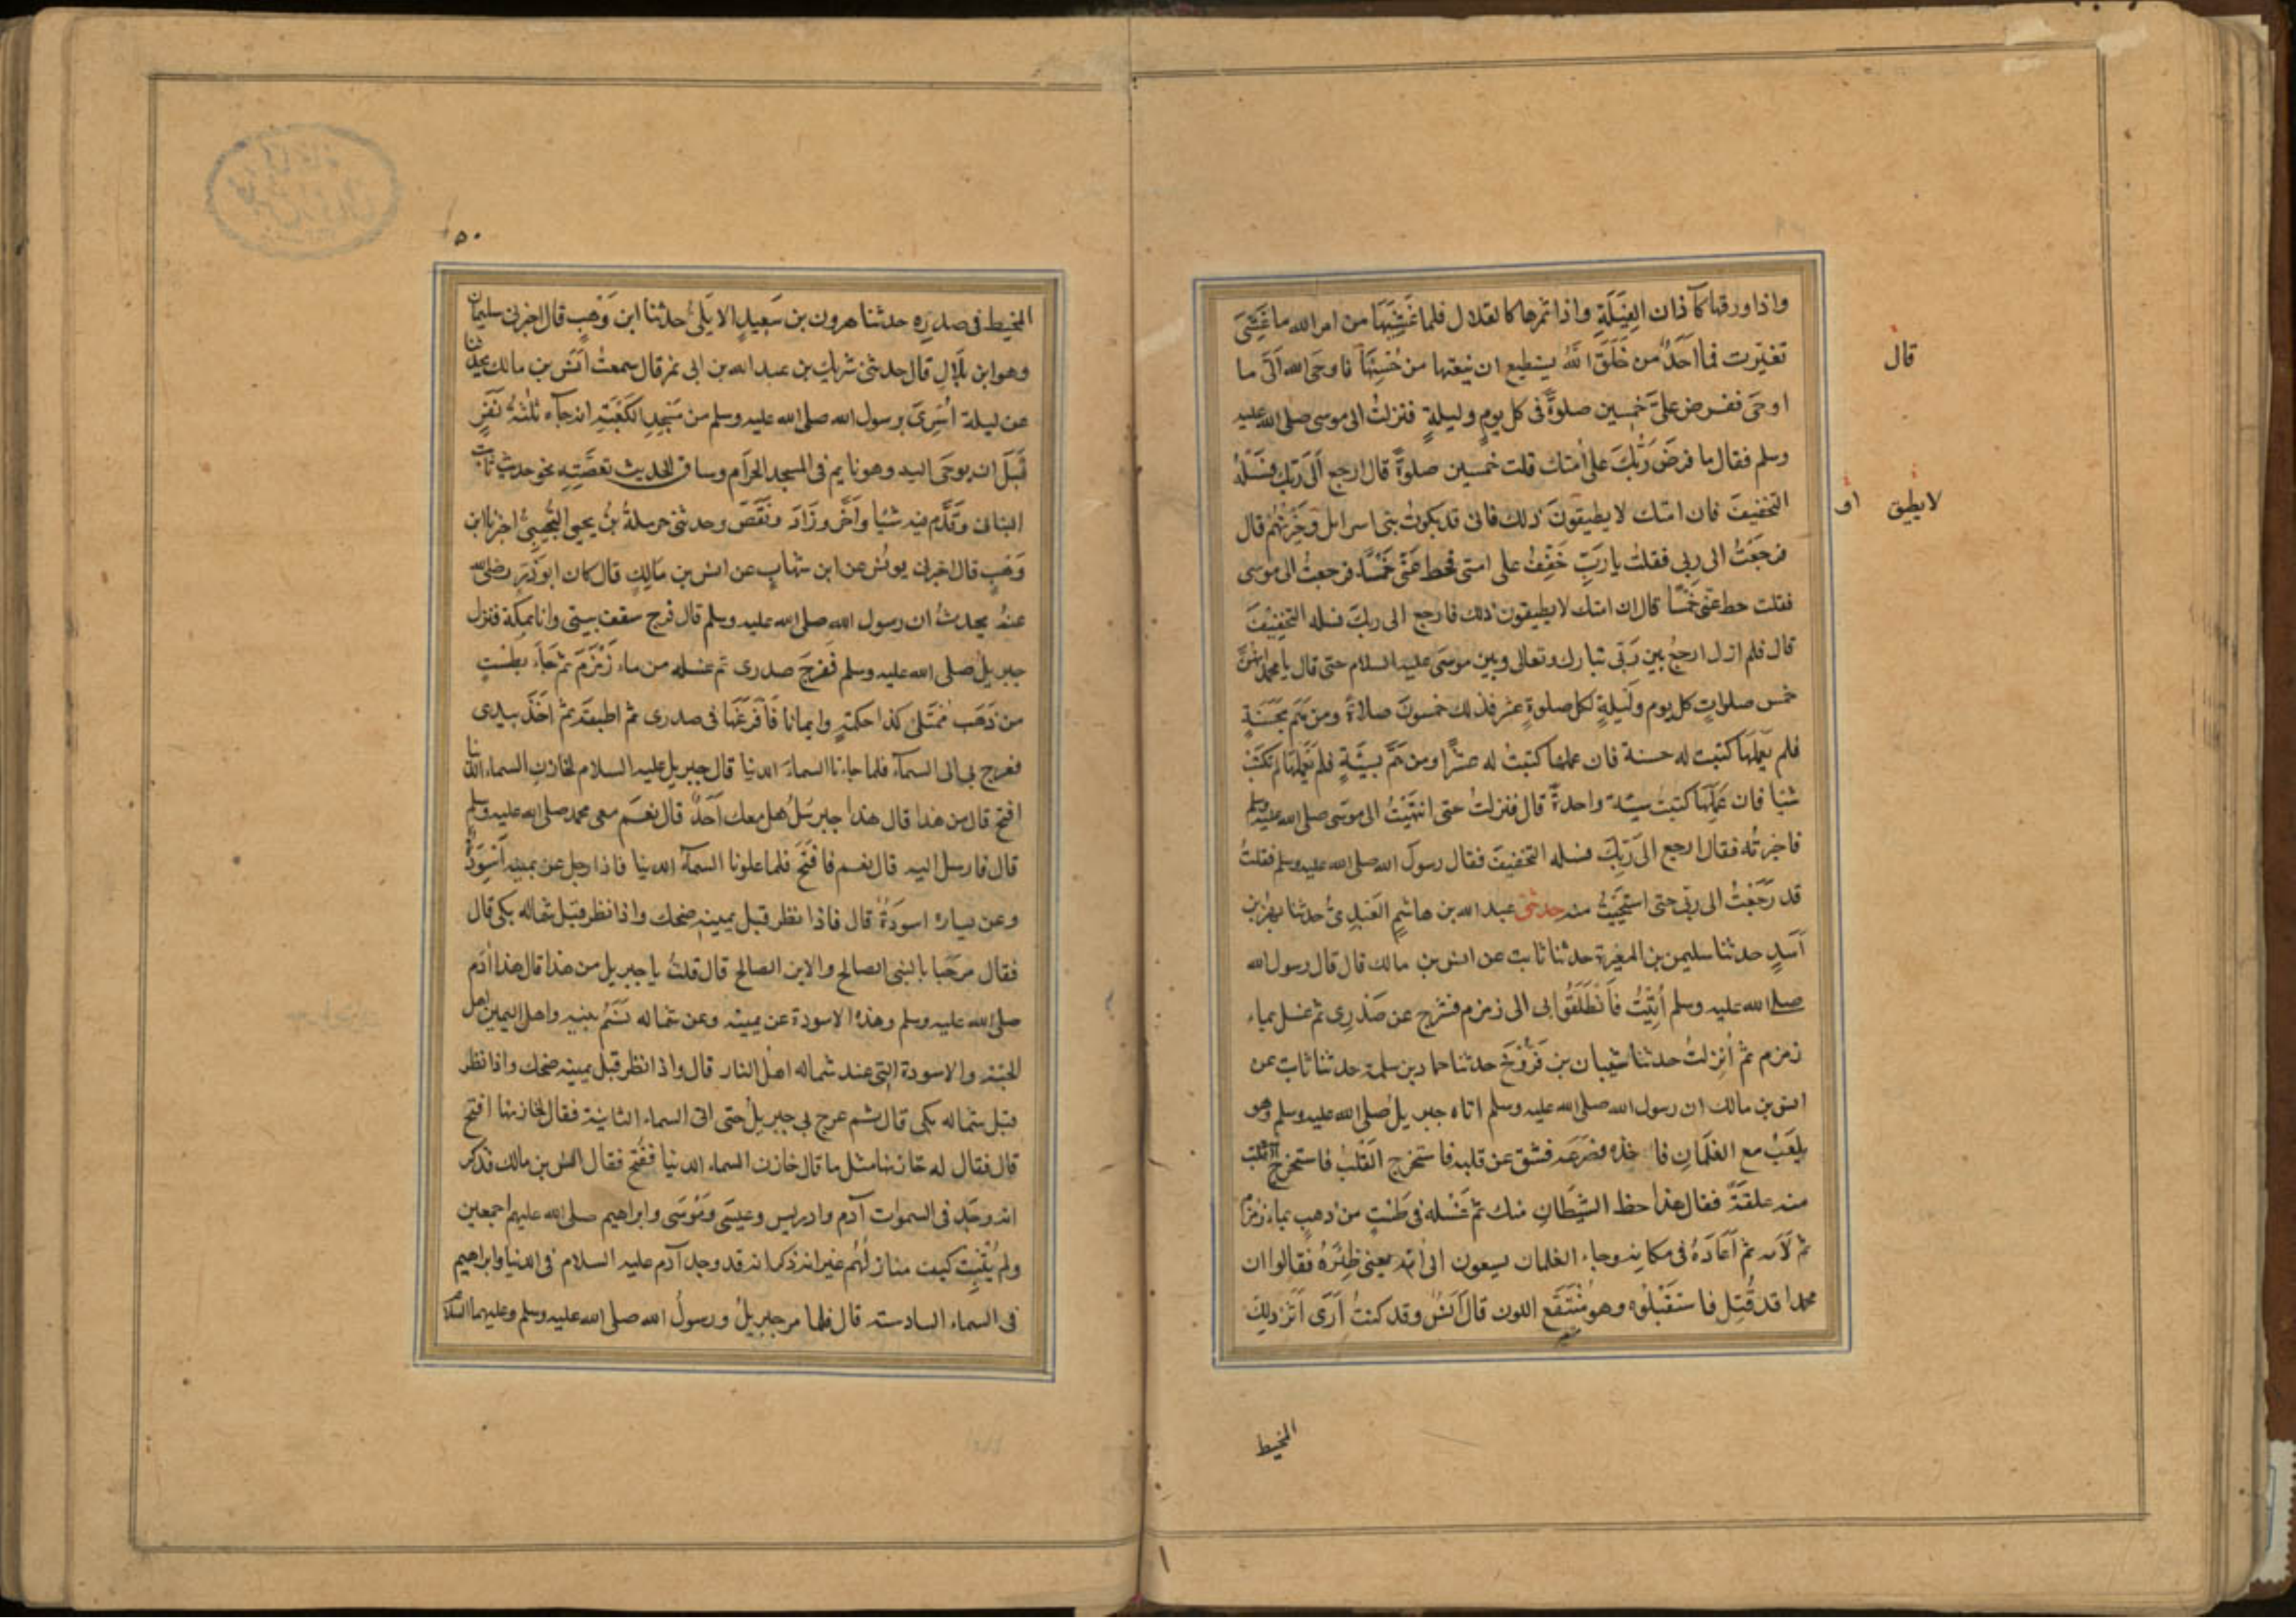 واذا ورقها كآذان الفِيَلَةِ واذا ثمرها كالقلال فلما غَشِيَهَا من امر الله ما غَشِىَ
تغيّرت فما اَحَدٌ من خَلَقَ اللهُ يستطيع ان ينعتها من حُسْنِهَا فاوحى الله اِلَىَّ ما
اوحى ففرض علىَّ خمسين صلوةً فى كل يوم وليلةٍ فنزلتُ الى موسى صلى الله عليه
وسلم فقال ما فرضَ رَبُّكَ على امتك قلت خمسين صلوةً قال ارجع اِلَى رَبِّكَ فَسَلْهُ
التخفيفَ فان امتك لا يطيقونَ ذلك فانى قد بلوتُ بنى اسرايل وخَبَرْتُهُم قال
فرجَعْتُ الى ربى فقلت يا رَبِّ خَفِّفْ على امتى فحط عَنِّى خَمْسًا فرجعتُ الى موسى
فقلت حط عنى خَمْسًا قال ان امتك لا يطيقون ذلك فارجع الى ربكَ فسله التخفيفَ
قال فلم ازل ارجعُ بين رَبّى تبارك وتعالى وبين موسَى عليه السلام حتى قال يا محمد انهنَّ
خمس صلواتٍ كل يوم ولَيلةٍ لكل صلوةٍ عشر فذلك خمسونَ صلاةً ومن هَمَّ بحَسَنَةٍ
فلم يَعْمَلهَا كتبت له حسنة فان عملها كتبتْ له عشرًا ومن هَمَّ بسَيِّئَةٍ فلم يَعْمَلهَا لم تكتَبْ
شيًا فان عَمِلَهَا كتبتْ سيّئة واحدةً قال فنزلتُ حتى انتَهَيْتُ الى موسَى صلى الله عليه وسلم
فاخبرتُه فقال ارجع الى رَبِّكَ فسله التخفيفَ فقال رسول الله صلى الله عليه وسلم فقلتُ
قد رَجَعْتُ الى ربّى حتى استَحْيَيْتُ منه حدثنى عبد الله بن هاشمٍ العَبْدِىُّ حدثنا بهز بن
اَسَدٍ حدثنا سليمن بن المغيرة حدثنا ثابت عن انس بن مالك قال قال رسول الله
صلى الله عليه وسلم اُتِيْتُ فَانْطَلَقُوا بى الى زمزم فشرح عن صَدْرِى ثم غسل بماء
زمزم ثم اُنزِلتُ حدثنا شيبان بن فَرُّوْخَ حدثنا حماد بن سلمة حدثنا ثابت عن
انس بن مالك ان رسول الله صلى الله عليه وسلم اتاه جبريل صلى الله عليه وسلم وهو
يلعَبُ مع الغلمانِ فاخذه فصَرَعَه فشق عن قلبه فاستخرج القَلْبَ فاستخرج
منه علقةً فقال هذا حظ الشيطانِ منك ثم غَسْله فى طَسْتٍ من ذهبٍ بماء زمزم
ثم لَأَمه ثم اَعَادَهُ فى مكانه وجاء الغلمان يسعون الى اُمّه يعنى ظِئْرَهُ فقالوا ان
محمدا قد قُتِل فاستَقْبَلُوه وهو مُنْتَقَع اللون قال اَنسٌ وقد كنتُ اَرَى اَثَرَ ذلِكَ
قال
لا يطيق
المخيط
٥٠
المخيط فى صدرِه حدثنا هرون بن سَعِيدٍ الايلىُّ حدثنا ابن وَهْبٍ قال اخبرنى سليمان
وهو ابن بِلَالٍ قال حدثنى شريك بن عبد الله بن ابى نمر قال سمعتُ اَنَسَ بن مالك يحدثنا
عن ليلة اُسْرِىَ برسول الله صلى الله عليه وسلم من مَسْجِدِ الكَعْبَةِ انه جآءه ثلثةُ نَفَرٍ
قَبْلَ ان يوحَى اليه وهو نايم فى المسجد الحرَام وساق الحديث بقصَّتِه نحو حديث ثابت
البنانى وَقَدَّم فيه شيًا واَخَّرَ وزَادَ ونَقَصَ وحدثنى حرملةُ بنُ يحيى التُّجِيْبِىُّ اخبرنا ابن
وَهْبٍ قال اخبرنى يونُس عن ابن شهابٍ عن انس بن مَالِكٍ قال كان ابو ذر رضى الله
عنهُ يحدثُ ان رسول الله صلى الله عليه وسلم قال فرج سقف بيتى وانا بمكة فنزل
جبريلُ صلى الله عليه وسلم فَفرجَ صدرى ثم غسله من ماء زَمْزَمَ ثم جَاء بطَسْتٍ
من ذَهَبٍ مُمتلئ كذا حكمةٍ وايمانا فَاَفْرَغَهَا فى صدرى ثم اطبقه ثم اَخَذَ بيدى
فعرج بى الى السماء فلما جاءنا السماءَ الدنيا قال جبريل عليه السلام لخازنِ السماء الدنيا
افتح قال من هذا قال هذا جبريلُ هل معك اَحَدٌ قال نعَم معى محمد صلى الله عليه وسلم
قال فارسل اليه قال نعم فافتَحَ فلما علونا السماءَ الدنيا فاذا رجل عن يمينه اَسْوِدَةٌ
وعن يساره اسوِدَةٌ قال فاذا نظر قبل يمينه ضحك واذا نظر قبَل شماله بكى قال
فقال مرحَبا بالنبى الصالح والابن الصالح قال قلتُ يا جبريل من هذا قال هذا اٰدم
صلى الله عليه وسلم وهذه الاسودة عن يمينه وعن شماله نَسَمُ بنيه واهل اليمين اهل
الجنة والاسودة التى عند شماله اهل النار قال واذا نظر قبَل يمينه ضحك واذا نظر
قبَل شماله بكى قال ثم عرج بى جبريلُ حتى اتى السماء الثانية فقال لخازنها افتح
قال فقال له خازنها مثل ما قال خازن السماء الدنيا ففُتح فقال انس بن مالك فذكر
انه وجَد فى السموات آدم وادريس وعيسَى ومُوْسَى وابراهيم صلى الله عليهم اجمعين
ولم يُثْبِتْ كيف منازلُهُم غير انه ذكر انه قد وجد آدم عليه السلام فى الدنيا وابراهيم
فى السماء السادسة قال فلما مر جبريلُ ورسولُ الله صلى الله عليه وسلم وعليهما السلام